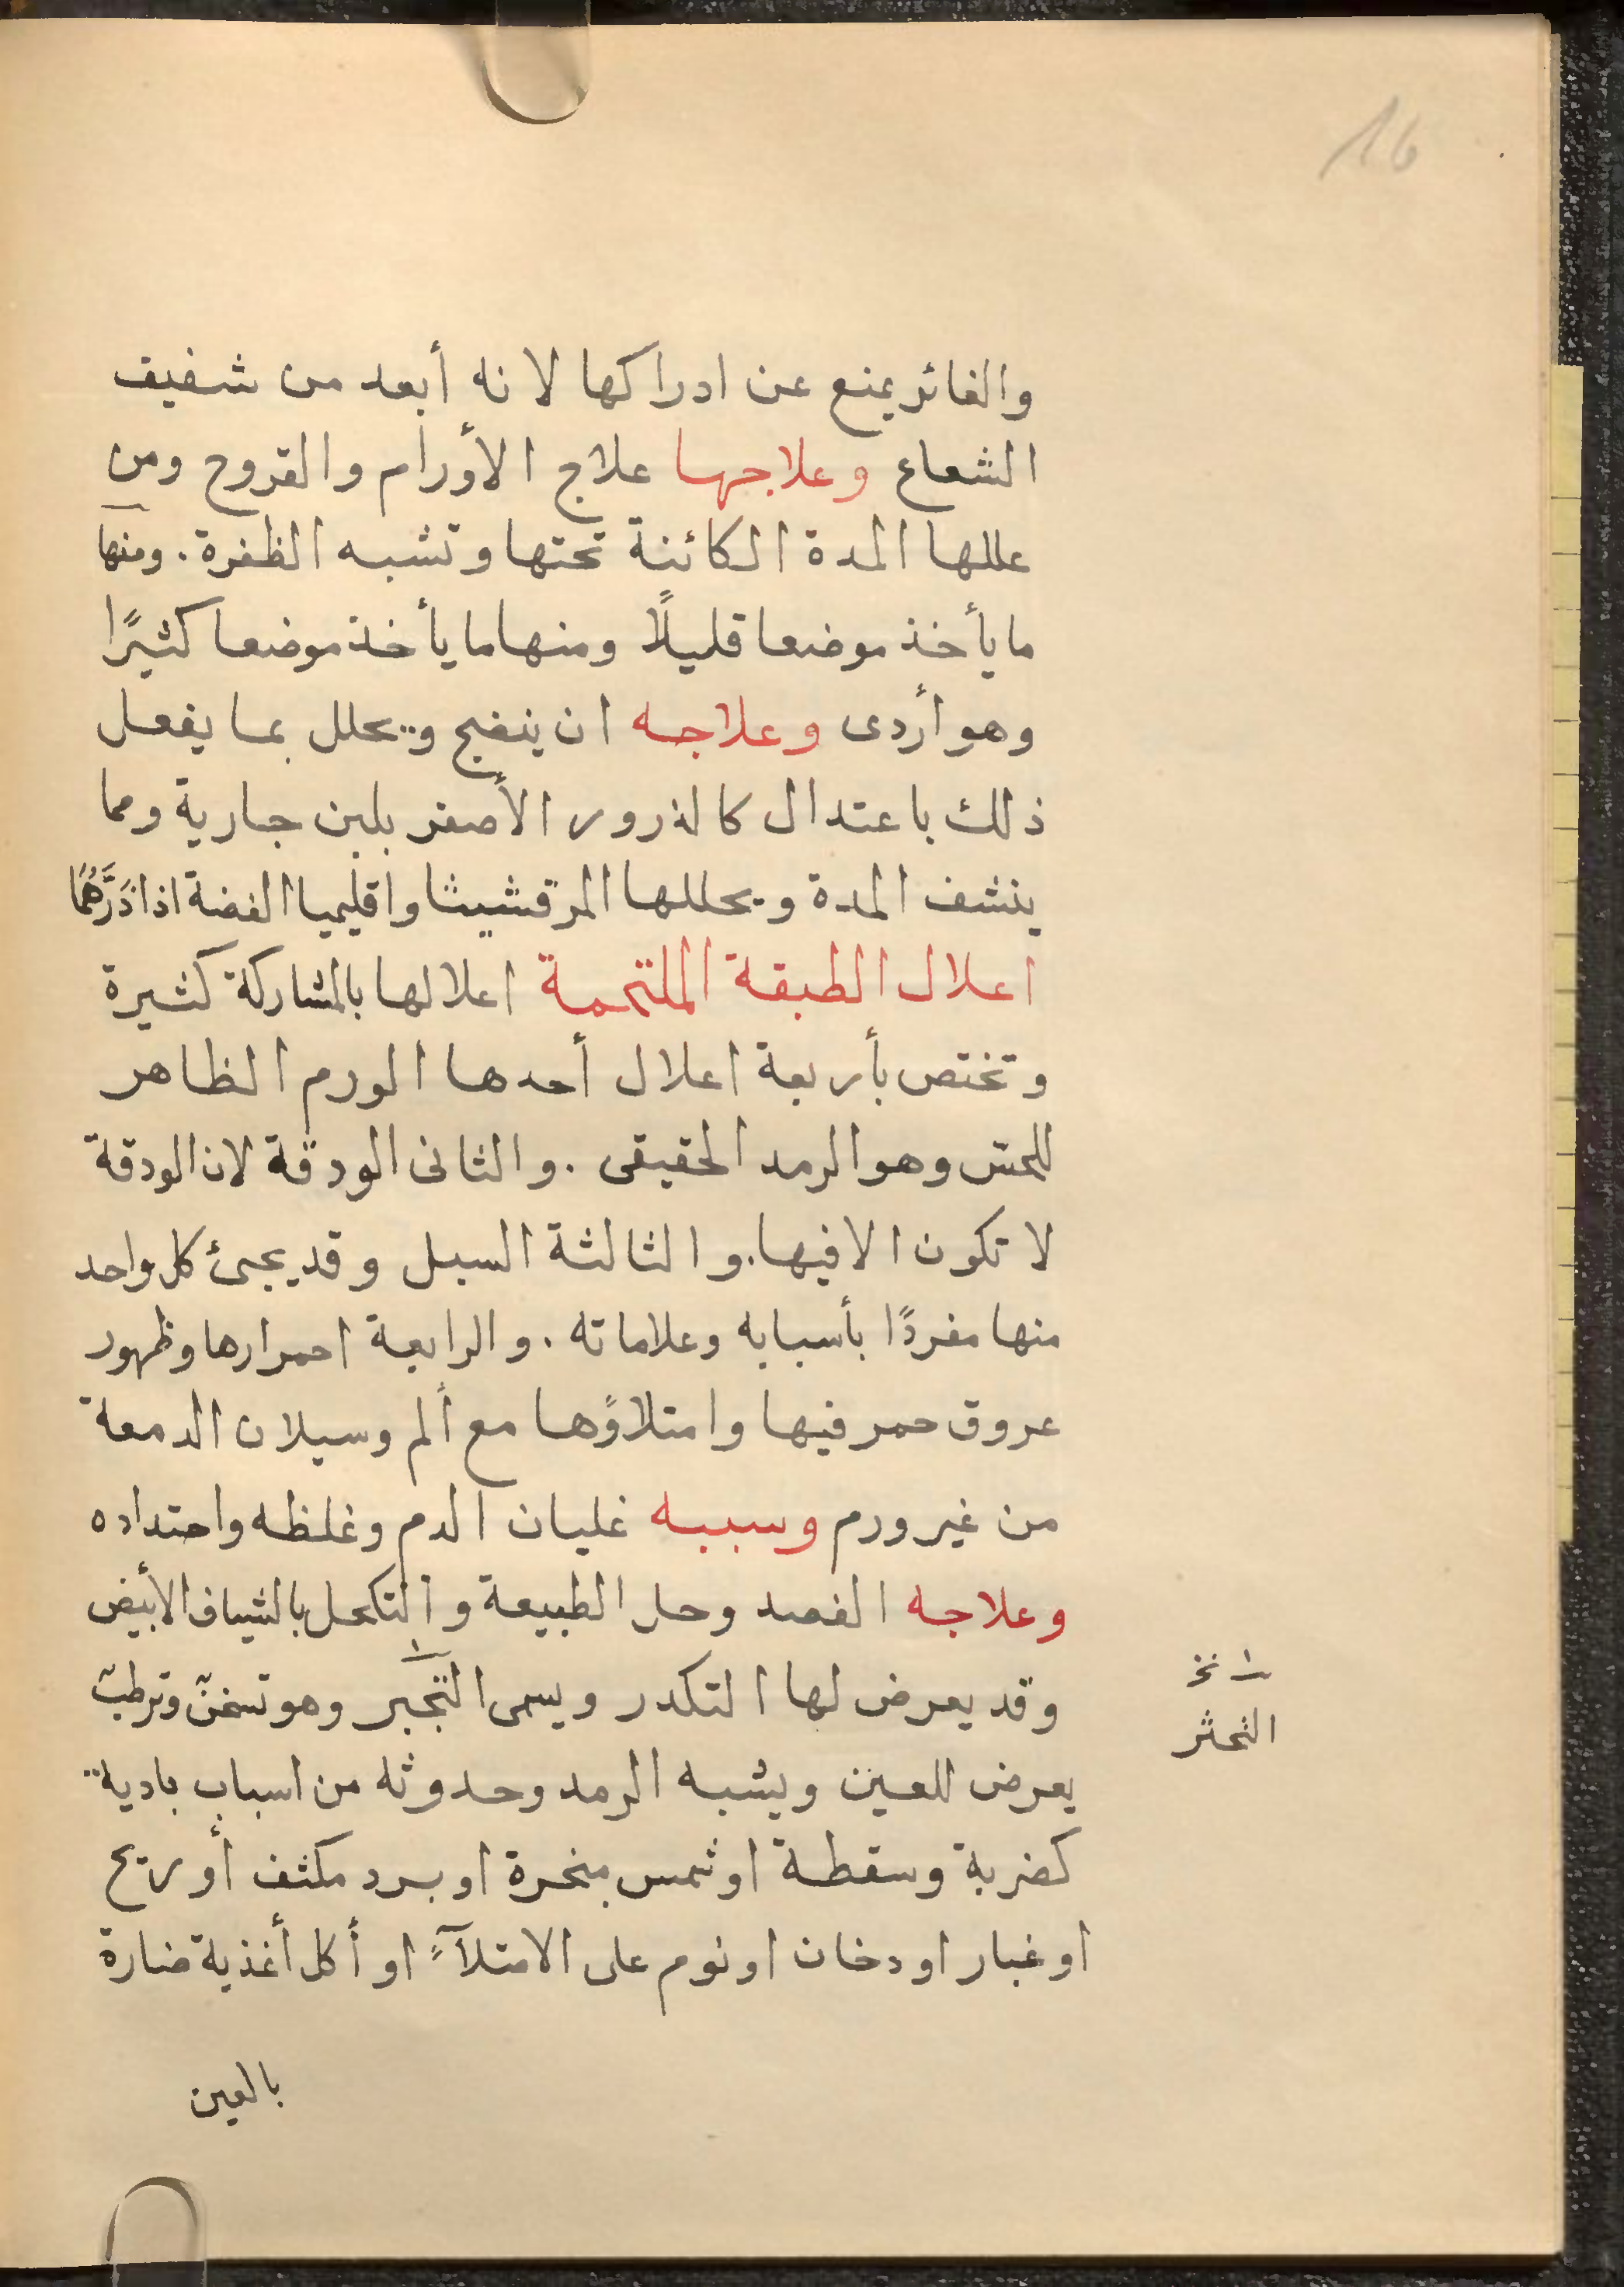 16
والغائر يمنع عن ادراكها لانه أبعد من شفيف
الشعاع وعلاجها علاج الأورام والقروح ومن
عللها المدة الكائنة تحتها وتشبه الظفرة. ومنها
ما يأخذ موضعا قليلًا ومنها ما يأخذ موضعا كثيرًا
وهو أردى وعلاجه ان ينضج ويحلل بما يفعل
ذلك باعتدال كالذرور الأصفر بلبن جارية ومما
ينشف المدة ويحللها المرقشيثا واقليميا الفضة اذا ذَرَّهُمَا
اعلال الطبقة الملتحمة اعلالها بالمشاركة كثيرة
وتختص بأربعة اعلال أحدها الورم الظاهر
للحس وهو الرمد الحقيقى. والثانى الودقة لان الودقة
لا تكون الا فيها. والثالثة السبل وقد يجىئ كل واحد
منها مفردًا بأسبابه وعلاماته. والرابعة احمرارها وظهور
عروق حمر فيها وامتلاؤها مع ألم وسيلان الدمعة
من غير ورم وسببه غليان الدم وغلظه واحتداده
وعلاجه الفصد وحل الطبيعة والتكحل بالشياف الأبيض
وقد يعرض لها التكدر ويسمى التجبر وهو تسخن وترطب
١ نخ
التحثر
يعرض للعين ويشبه الرمد وحدوثه من اسباب بادية
كضربة وسقطة او شمس مبخرة او برد مكثف أو ريح
او غبار او دخان او نوم على الامتلآءٍ او أكل أغذية ضارة
بالعين